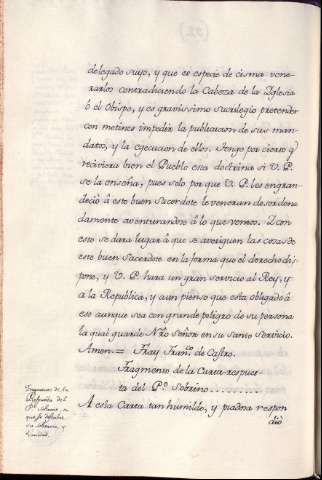 delegado suyo, y que es especie de cisma vene-
rarlos contradiciendo la Cabeza de la Yglesia
ò el Obispo, y es gravissimo sacrilegio pretender
con motines impedir la publicacion de sus man-
datos, y la egecucion de ellos. Tengo por cierto q̃
recivirà bien el Pueblo esta doctrina si V. P.
se la enseña, pues solo por que V. P. les engran-
deciò à este buen Sacerdote le veneran desordena
damente aventurandos à lo que vemos. Y con
esto se darà lugar à que se averiguen las cosas de
este buen Sacerdote en la forma que el derecho dis-
pone, y V. P. harà un gran servicio al Rey, y
a la Republica, y aun pienso que està obligado à
ese aunque sea con grande peligro de su persona
la qual guarde Nrõ Señor en su santo Servicio.
Amen.= Fray Fran.co de Castro.
Fragmento de la Carta respues-
ta del P.e Sobrino..........
A esta Carta tan humilde, y piadosa respon
diò
Fragmento de la
Respuesta del
P.e Sobrino, en
que se descubre
su sobervia, y